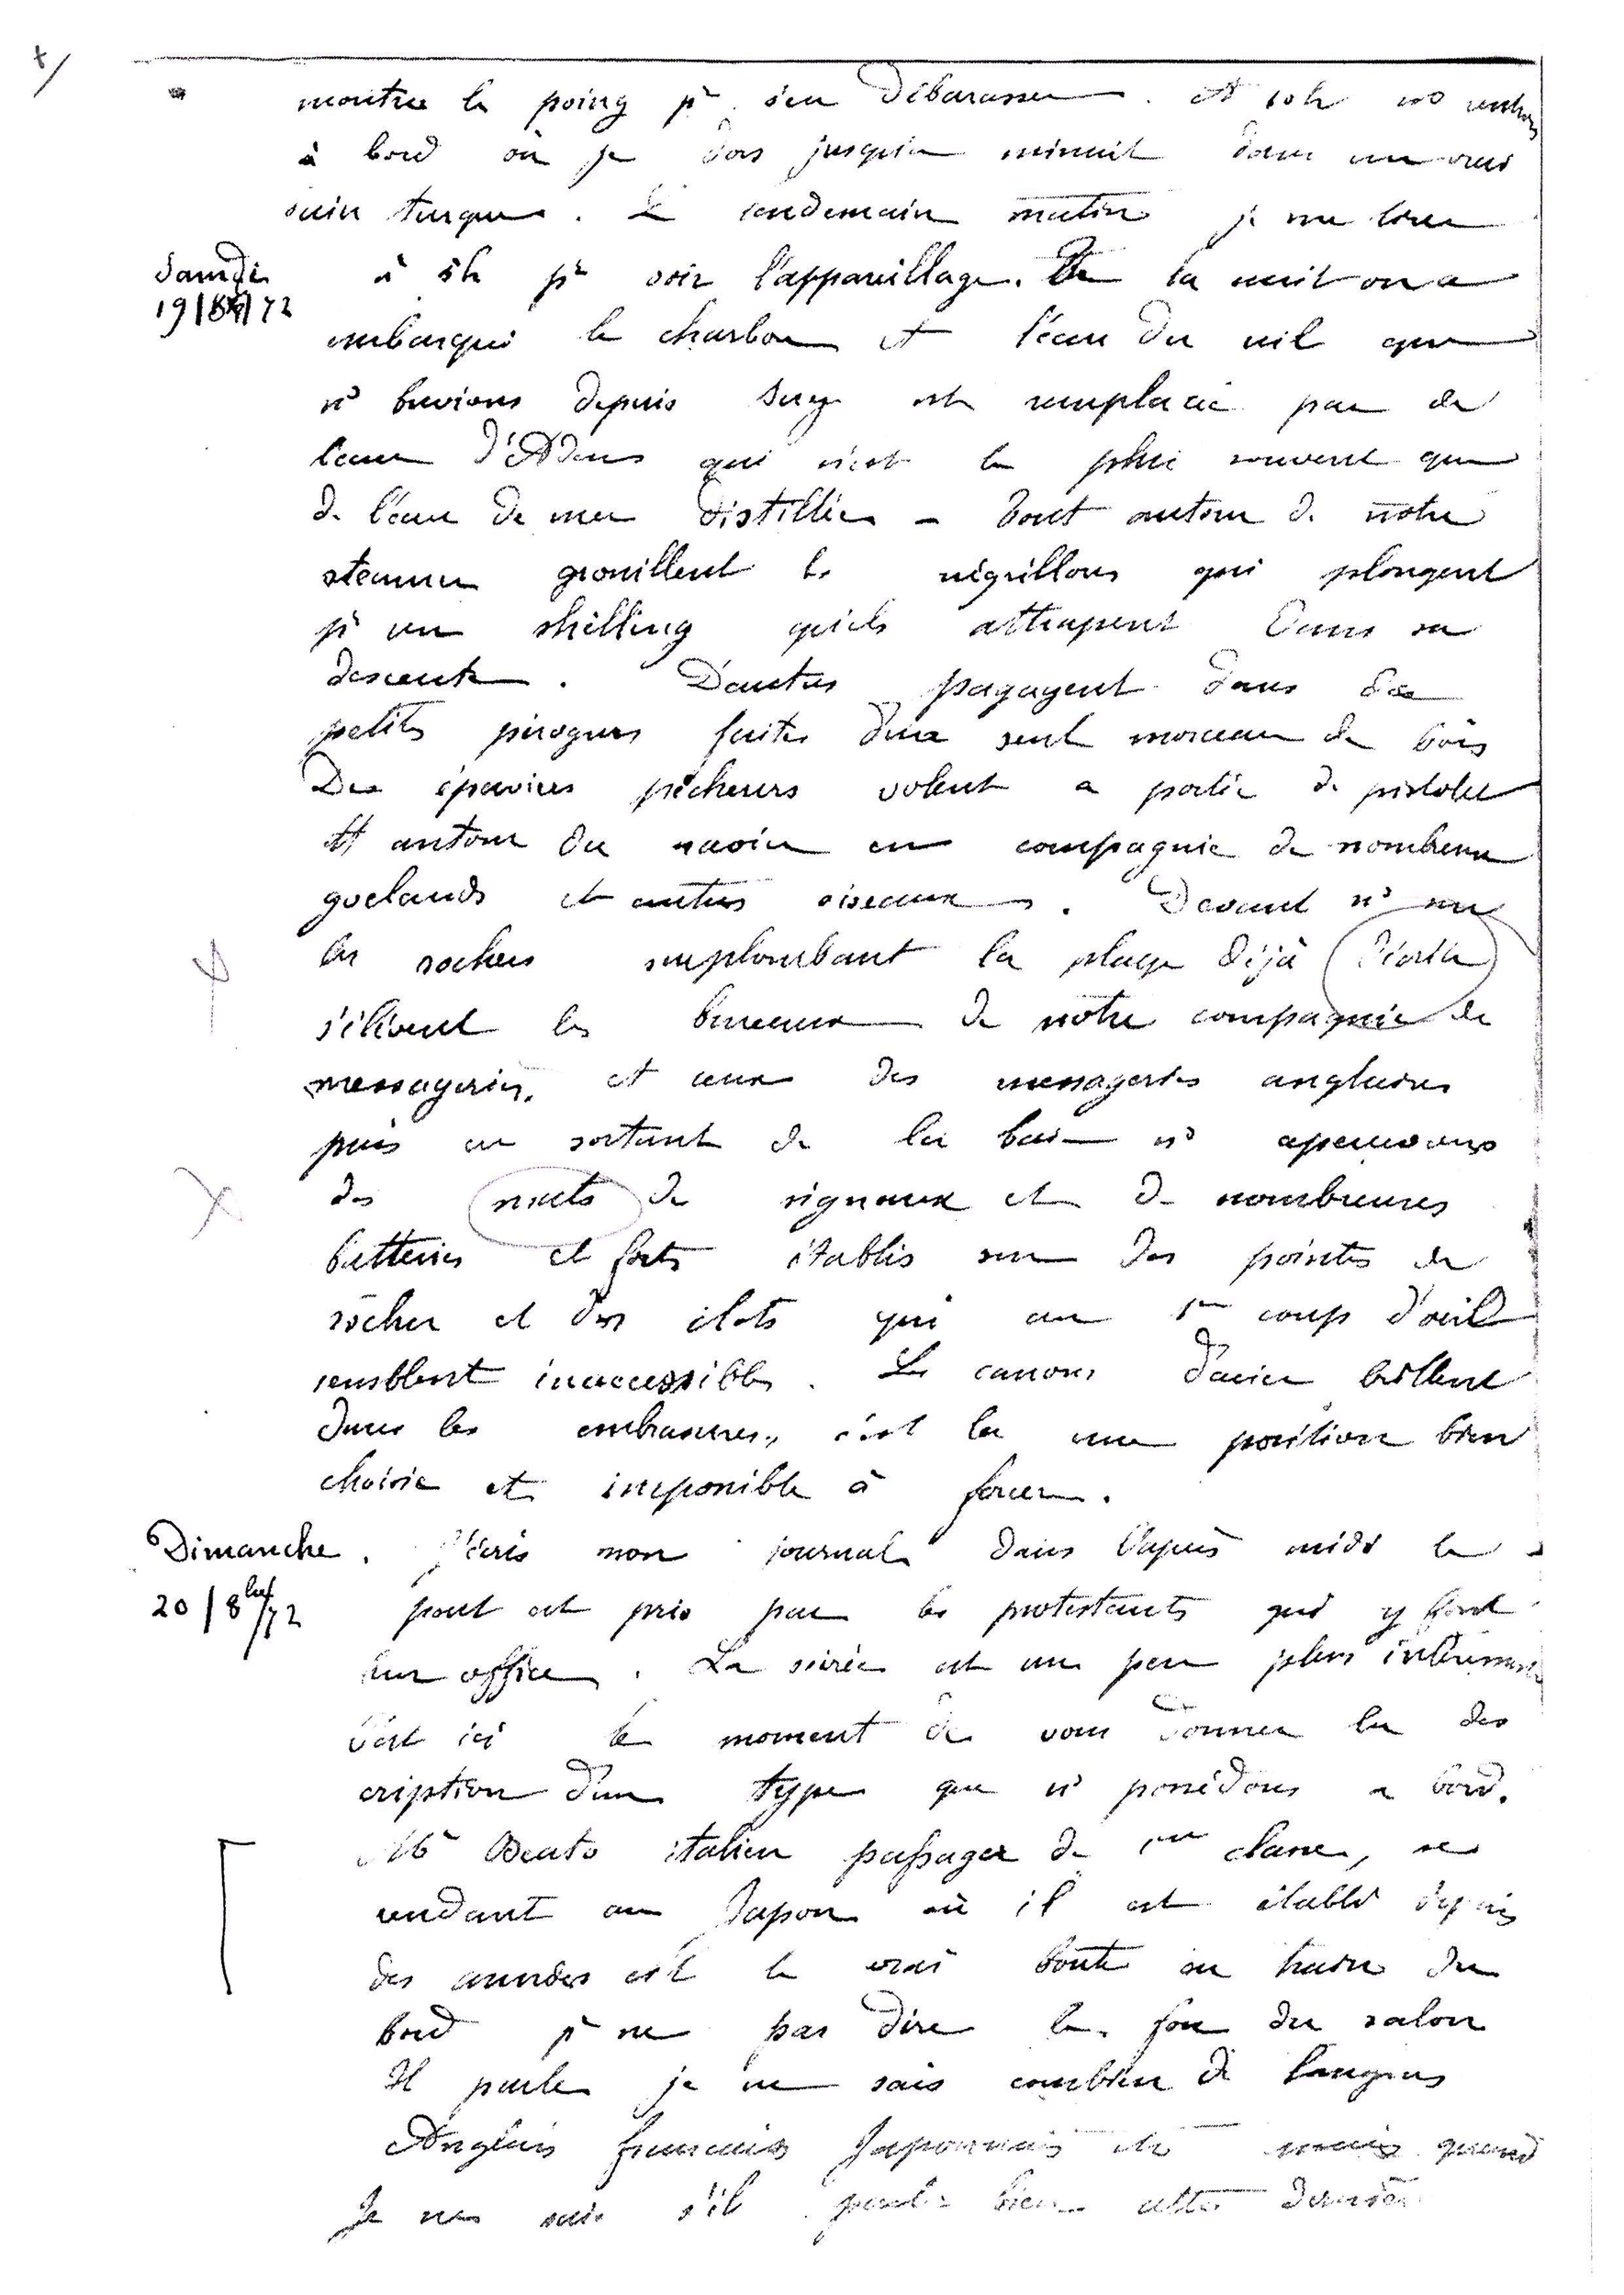 montrer le poing pr s'en débarasser. A 10h ns rentrons
à bord où je dors jusqu'à minuit dans un vrai
bain turque. Le lendemain matin je me leve
Samedi
19/8bre/72
à 5h pr voir l'appareillage. De la nuit on a
embarqué le charbon et l'eau du nil que
ns buvions depuis Suez est remplacée par de
l'eau d'Aden qui n'est le plus souvent que
de l'eau de mer distillée - Tout autour de notre
steamer grouillent les négrillons qui plongent
pr un shilling qu'ils attrapent dans sa
descente. D'autres pagayent dans des
petites pirogues faites d'un seul morceau de bois
Des éperviers pêcheurs volent a portée de pistolet
et autour du navire en compagnie de nombreux
goelands et autres oiseaux. Devant ns sur
les rochers surplombant la plage déjà
s'élèvent les bureaux de notre compagnie de
messageries. et ceux des messageries anglaises
puis en sortant de la baie ns apercevons
des mats de signaux et de nombreuses
batteries et forts établis sur des pointes de
rocher et des ilots qui au 1er coup d'oeil
semblent inaccessibles. Les canons d'acier brillent
dans les embrasures, c'est la une position bien
choisie et impossible à forcer.
Dimanche. J'écris mon journal dans l'après midi le
20/8bre/72
pont est pris par les protestants qui y font
leur office. La soirée est un peu plus intéressante
C'est ici le moment de vous donner la des
cription d'un type que ns possédons a bord.
Mr Beato italien passager de 1ere classe, se
rendant au Japon où il est établi depuis
des années est le vrai boute en train du
bord pr ne pas dire le fou du salon
Il parle je ne sais combien de langues
Anglais francais Japonnais etc mais quand
Je ne sais s'il parle bien cette dernière